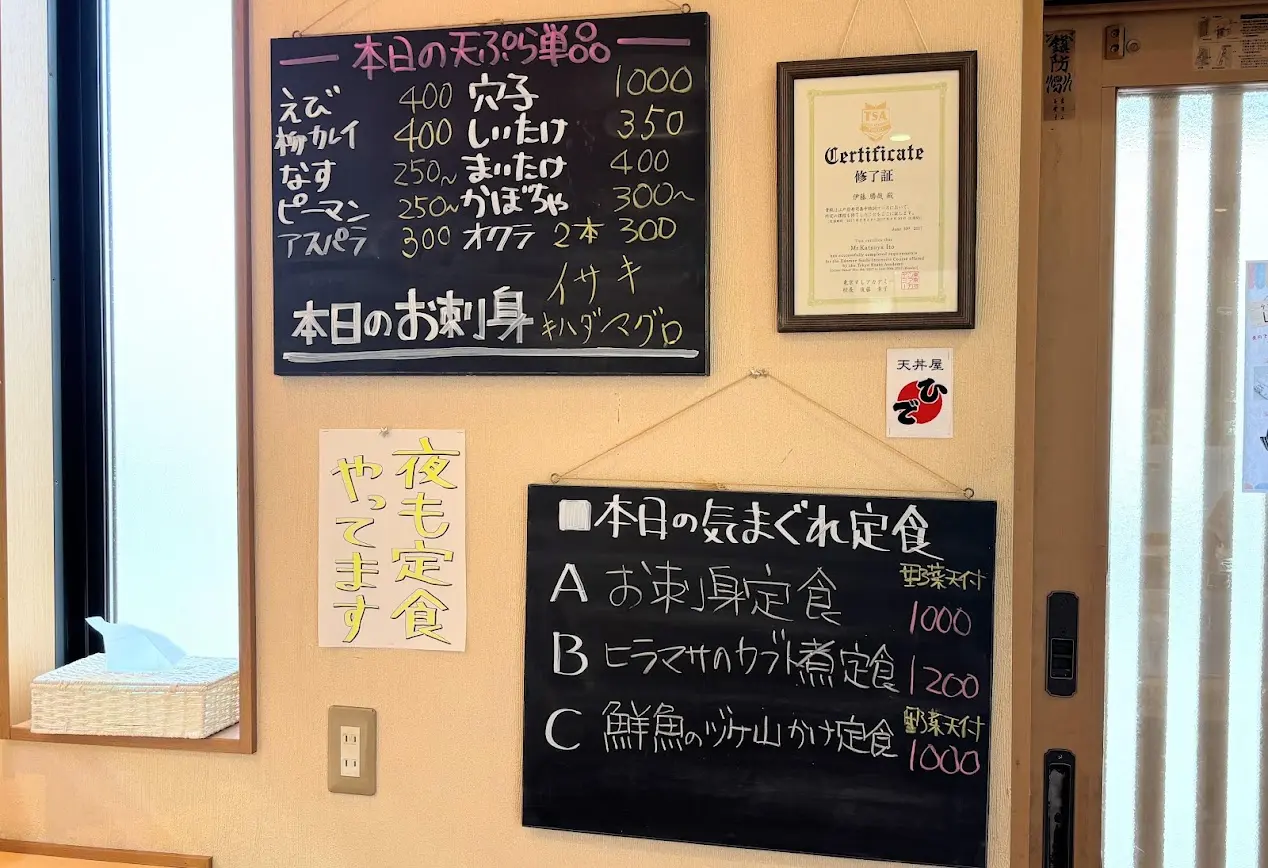 本日の天ぷら単品
えび 400 穴子 1000
柳カレイ 400 しいたけ 350
なす 250~ まいたけ 400
ピーマン 250~ かぼちゃ 300~
アスパラ 300 オクラ 2本 300
本日のお刺身
イサキ
キハダマグロ
TSA
Certificate
修了証
伊藤 勝哉 殿
This certifies that
Mr.Katsuya Ito
東京すしアカデミー
天丼屋
ひで
夜も定食
やってます
■本日の気まぐれ定食
A お刺身定食 野菜天付 1000
B ヒラマサのカブト煮定食 1200
C 鮮魚のヅケ山かけ定食 野菜天付 1000